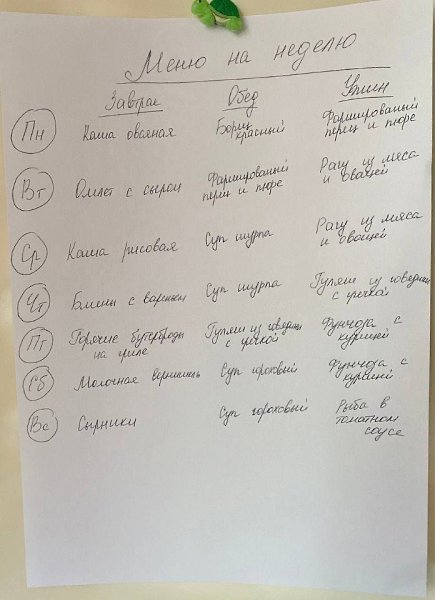 Меню на неделю
Завтрак Обед Ужин
Пн Каша овсяная Борщ красный Фаршированый перец и пюре
Вт Омлет с сыром Фаршированый перец и пюре Рагу из мяса и овощей
Ср Каша рисовая Суп шурпа Рагу из мяса и овощей
Чт Блины с вареньем Суп шурпа Гуляш из говядины с гречкой
Пт Горячие бутерброды на гриле Гуляш из говядины с гречкой Фунчоза с курицей
Сб Молочная вермишель Суп гороховый Фунчоза с курицей
Вс Сырники Суп гороховый Рыба в томатном соусе